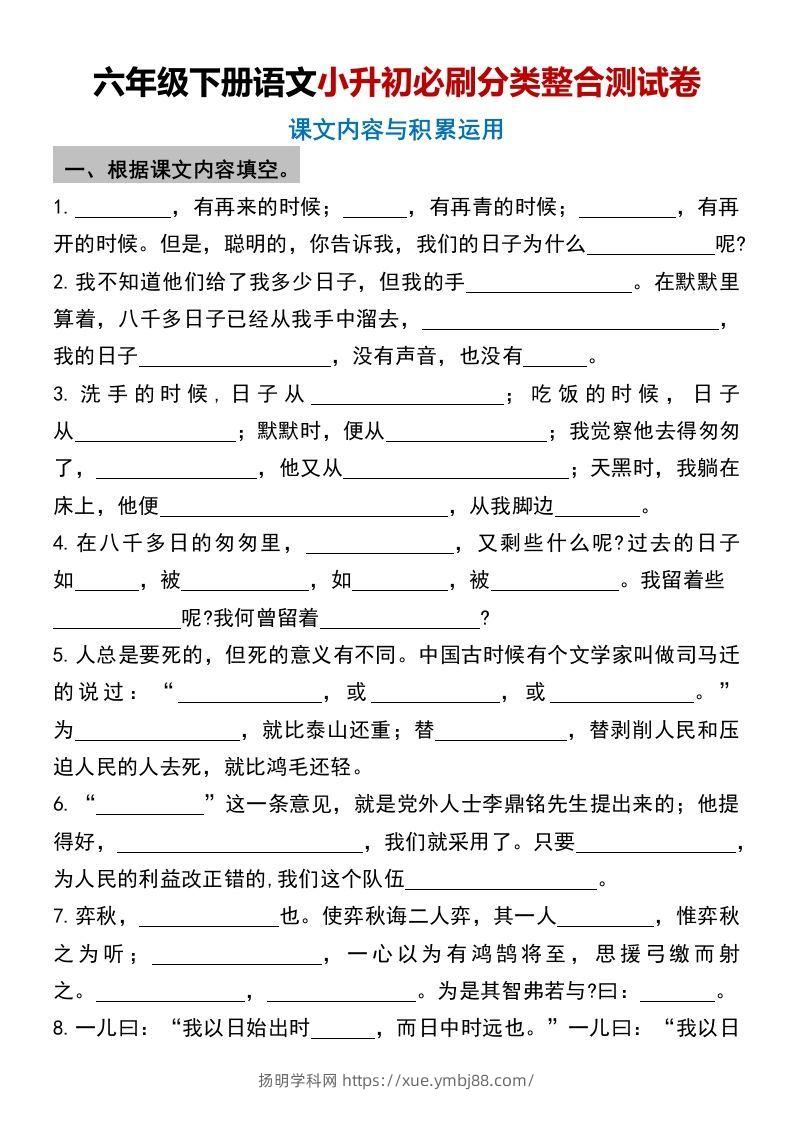 六年级下册语文小升初必刷分类整合测试卷
课文内容与积累运用
一、根据课文内容填空。
1. ________，有再来的时候；______，有再青的时候；________，有再
开的时候。但是，聪明的，你告诉我，我们的日子为什么____________呢?
2. 我不知道他们给了我多少日子，但我的手________________。在默默里
算着，八千多日子已经从我手中溜去，____________________________，
我的日子__________________，没有声音，也没有______。
3. 洗手的时候,日子从__________________；吃饭的时候，日子
从________________；默默时，便从________________；我觉察他去得匆匆
了，________________，他又从______________________；天黑时，我躺在
床上，他便____________________________，从我脚边________。
4. 在八千多日的匆匆里，______________，又剩些什么呢?过去的日子
如______，被____________，如_________，被____________。我留着些
____________呢?我何曾留着________________?
5. 人总是要死的，但死的意义有不同。中国古时候有个文学家叫做司马迁
的说过：“______________，或____________，或______________。”
为________________，就比泰山还重；替____________，替剥削人民和压
迫人民的人去死，就比鸿毛还轻。
6. “__________”这一条意见，就是党外人士李鼎铭先生提出来的；他提
得好，______________________，我们就采用了。只要_______________，
为人民的利益改正错的,我们这个队伍__________________。
7. 弈秋，_____________也。使弈秋诲二人弈，其一人_________，惟弈秋
之为听；________________，一心以为有鸿鹄将至，思援弓缴而射
之。______________，______________。为是其智弗若与?曰：_______。
8. 一儿曰：“我以日始出时______，而日中时远也。”一儿曰：“我以日
扬明学科网 https://xue.ymbj88.com/